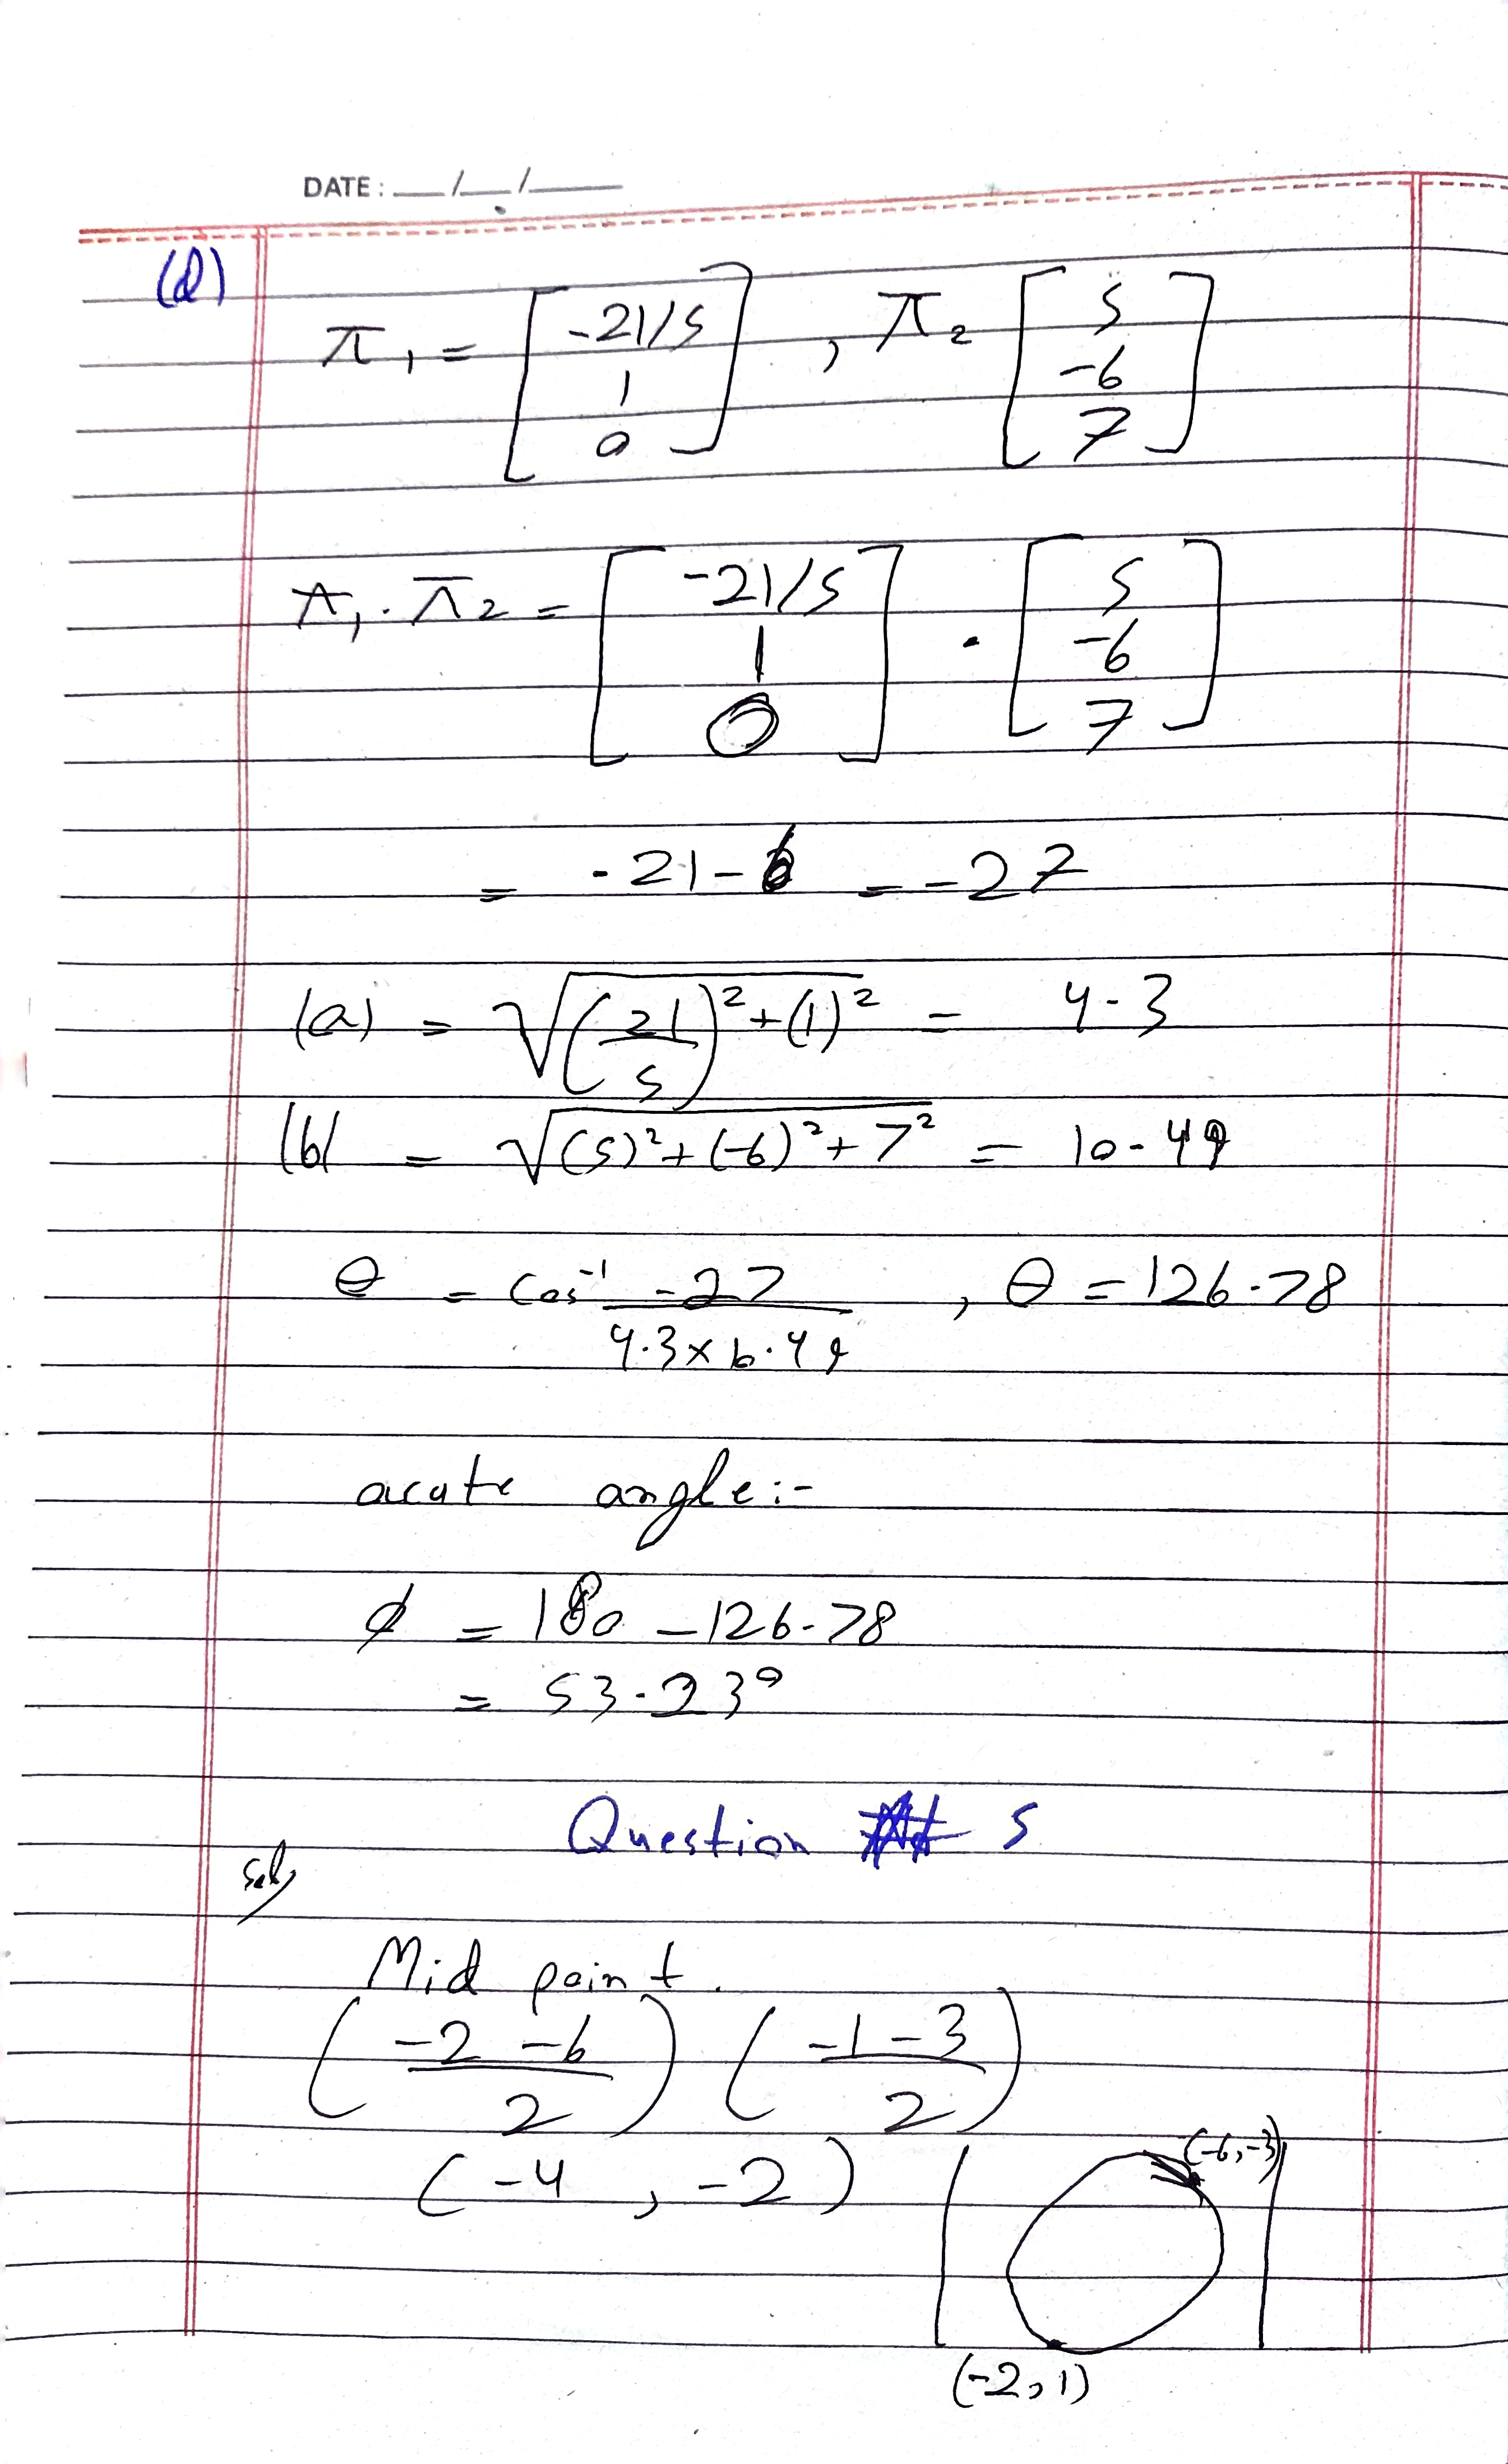 DATE : __/__/____
(d)
π₁ = [ -21/5 1 0 ] , π₂ [ 5 -6 7 ]
π₁ . π₂ = [ -21/5 1 0 ] . [ 5 -6 7 ]
= -21 - 6 = -27
|a| = √((21/5)² + (1)²) = 4.3
|b| = √((5)² + (-6)² + 7²) = 10.49
θ = cos⁻¹ -27 / 4.3 × 10.49 , θ = 126.78
acute angle :-
φ = 180 - 126.78
= 53.23°
Question 5
Sol,
Mid point.
( -2 -6 / 2 ) ( -1 - 3 / 2 )
( -4 , -2 )
(-6, -3)
(-2, 1)